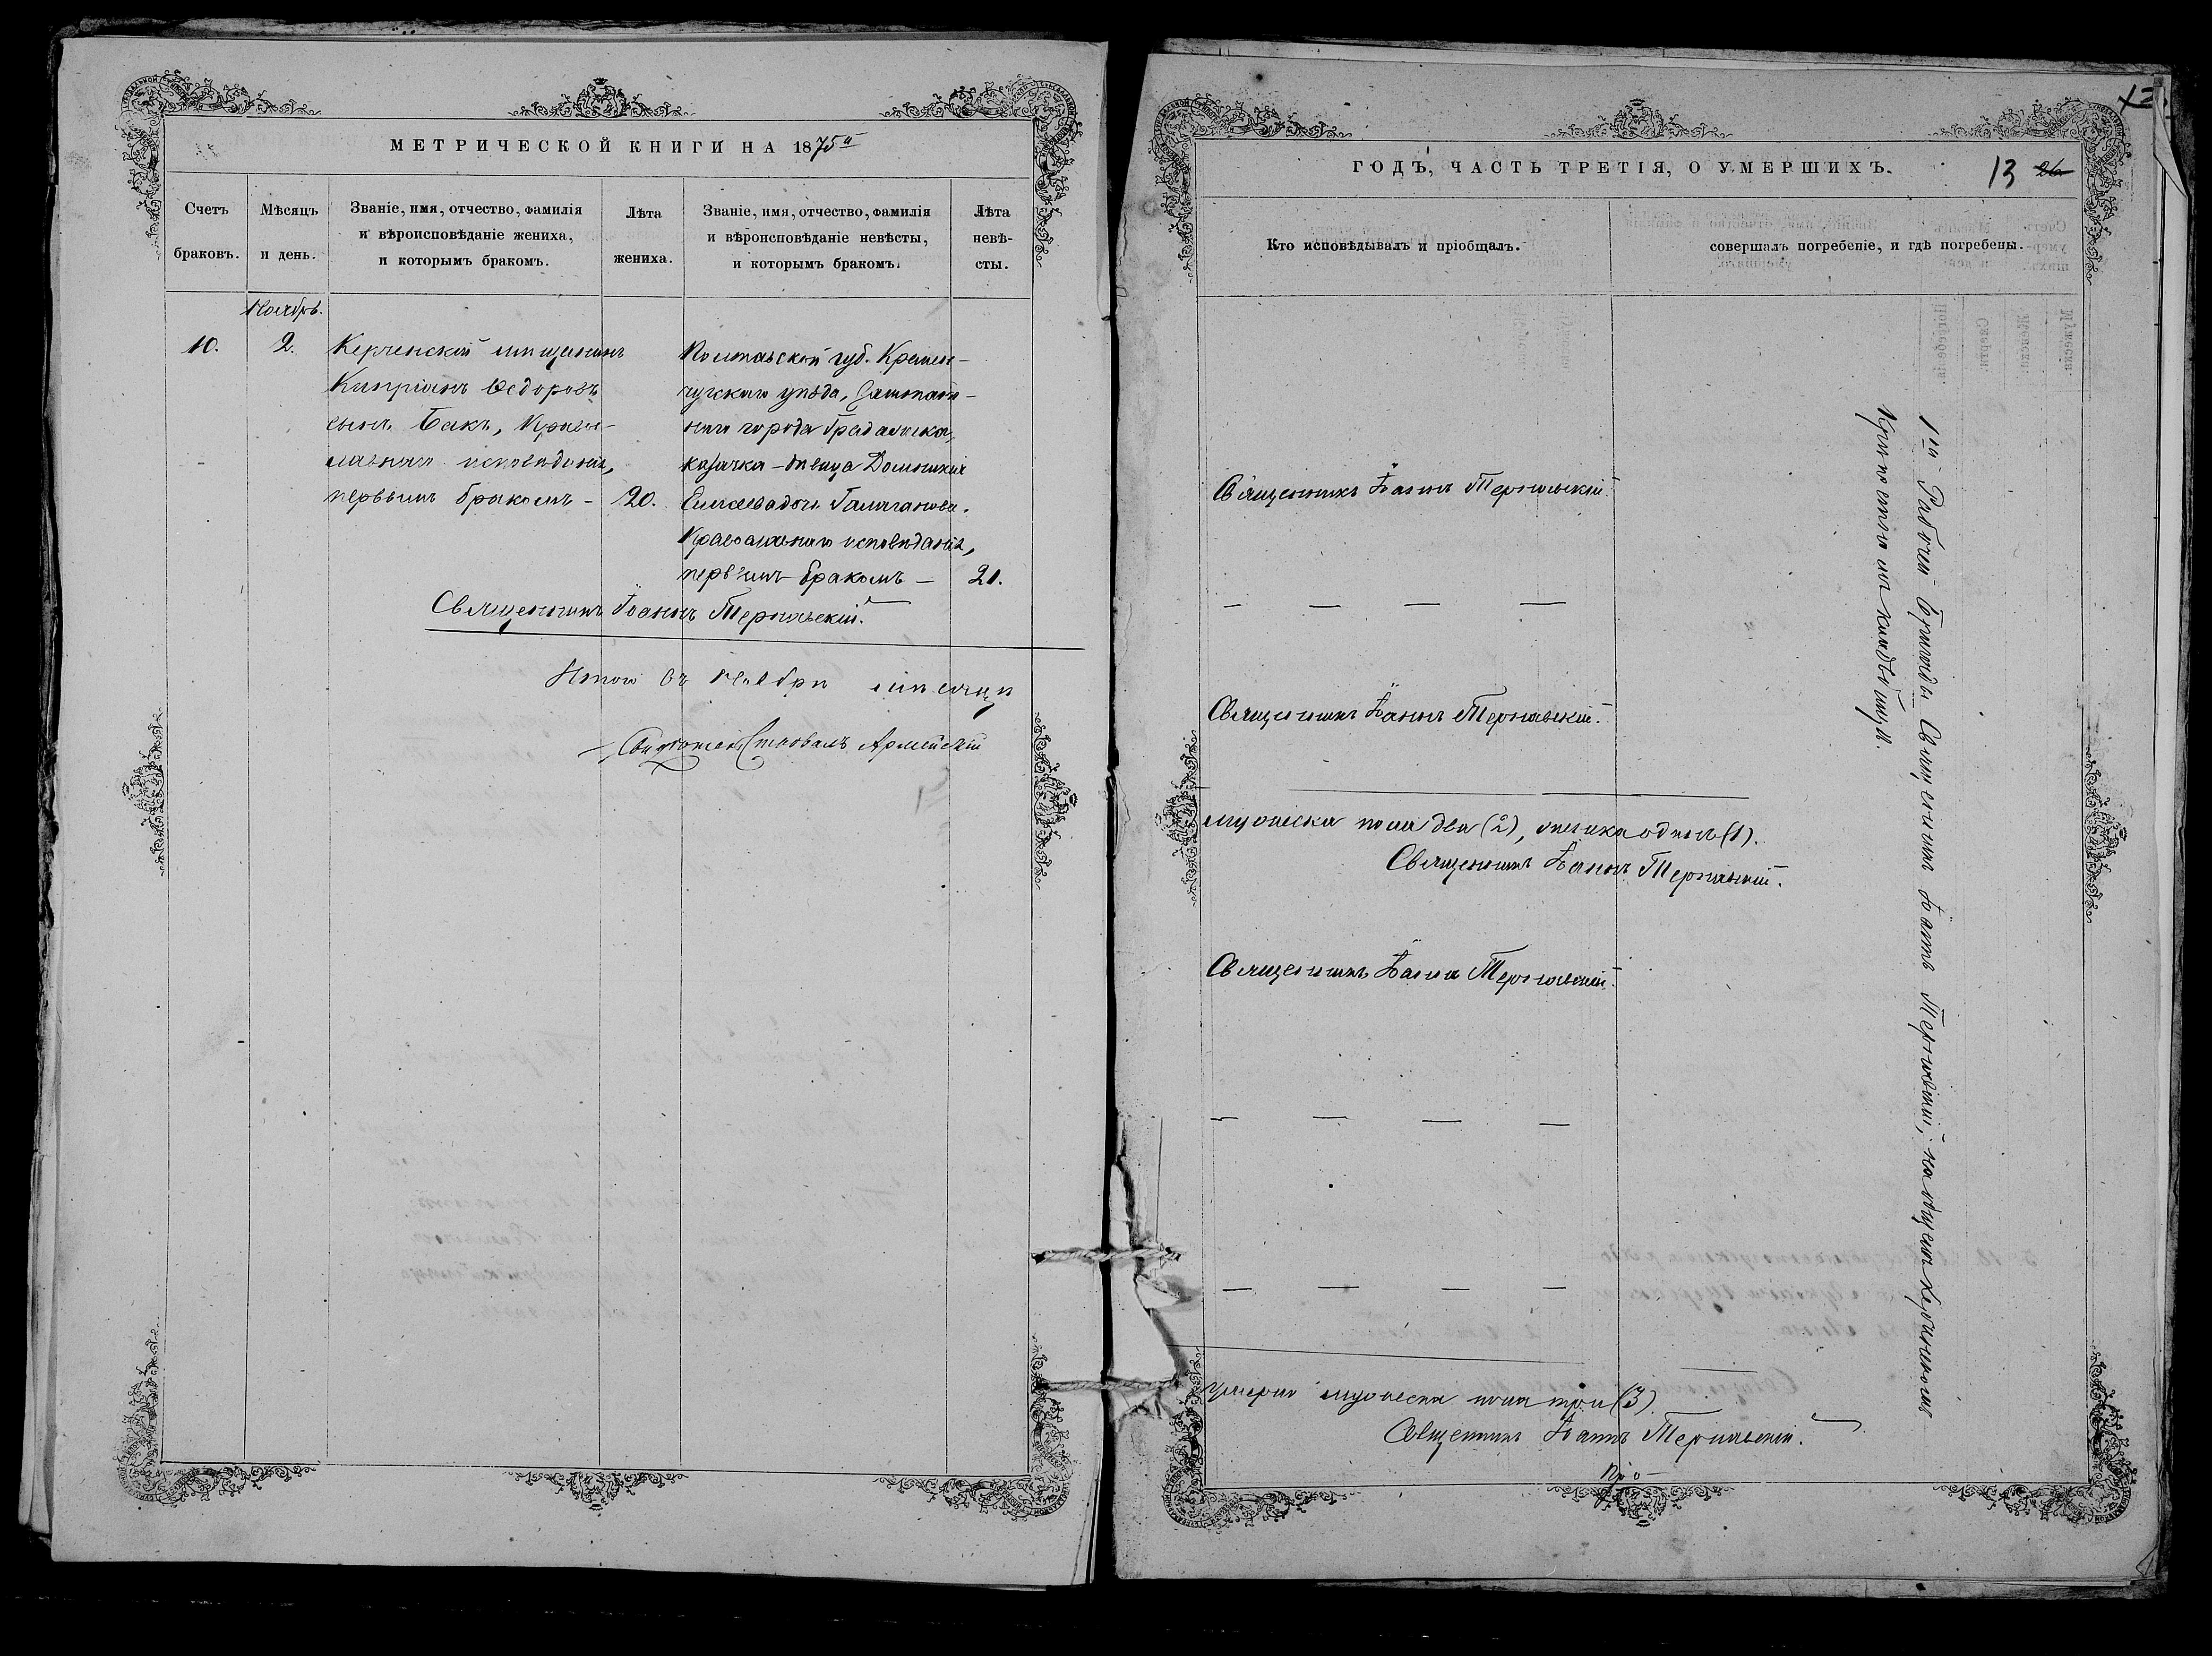 МЕТРИЧЕСКОЙ КНИГИ НА 1875й
Счетъ браковъ.
Мѣсяцъ и день.
Званіе, имя, отчество, фамилія
и вѣроисповѣданіе жениха,
и которымъ бракомъ.
Лѣта
жениха.
Званіе, имя, отчество, фамилія
и вѣроисповѣданіе невѣсты,
и которымъ бракомъ.
Лѣта
невѣ-
сты.
Ноябрь.
10.
2.
Керченскій мѣщанинъ
Кипріанъ Ѳедоровъ
сынъ Бакъ, Право-
славнаго исповѣданія,
первымъ бракомъ –
20.
Полтавской губ. Кремен-
чугскаго уѣзда,
города Градижска,
казачка – дѣвица Домникія
Галаганова.
Православнаго исповѣданія,
первымъ бракомъ –
21.
Священникъ Іоаннъ Терновскій.
Итого въ Ноябрѣ мѣсяцѣ
ГОДЪ, ЧАСТЬ ТРЕТІЯ, О УМЕРШИХЪ.
13 26
Кто исповѣдывалъ и пріобщалъ.
совершалъ погребеніе, и гдѣ погребены.
Священникъ Іоаннъ Терновскій.
— — — —
Священникъ Іоаннъ Терновскій.
мужеска пола два (2), женска одинъ (1).
Священникъ Іоаннъ Терновскій.
Священникъ Іоаннъ Терновскій.
— — — —
— — — —
умерло мужеска пола три (3).
Священникъ Іоаннъ Терновскій.
По–
1й Рабочей Бригады Священникъ Іоаннъ Терновскій, на общемъ Керченскомъ
Крѣпостномъ кладбищѣ.